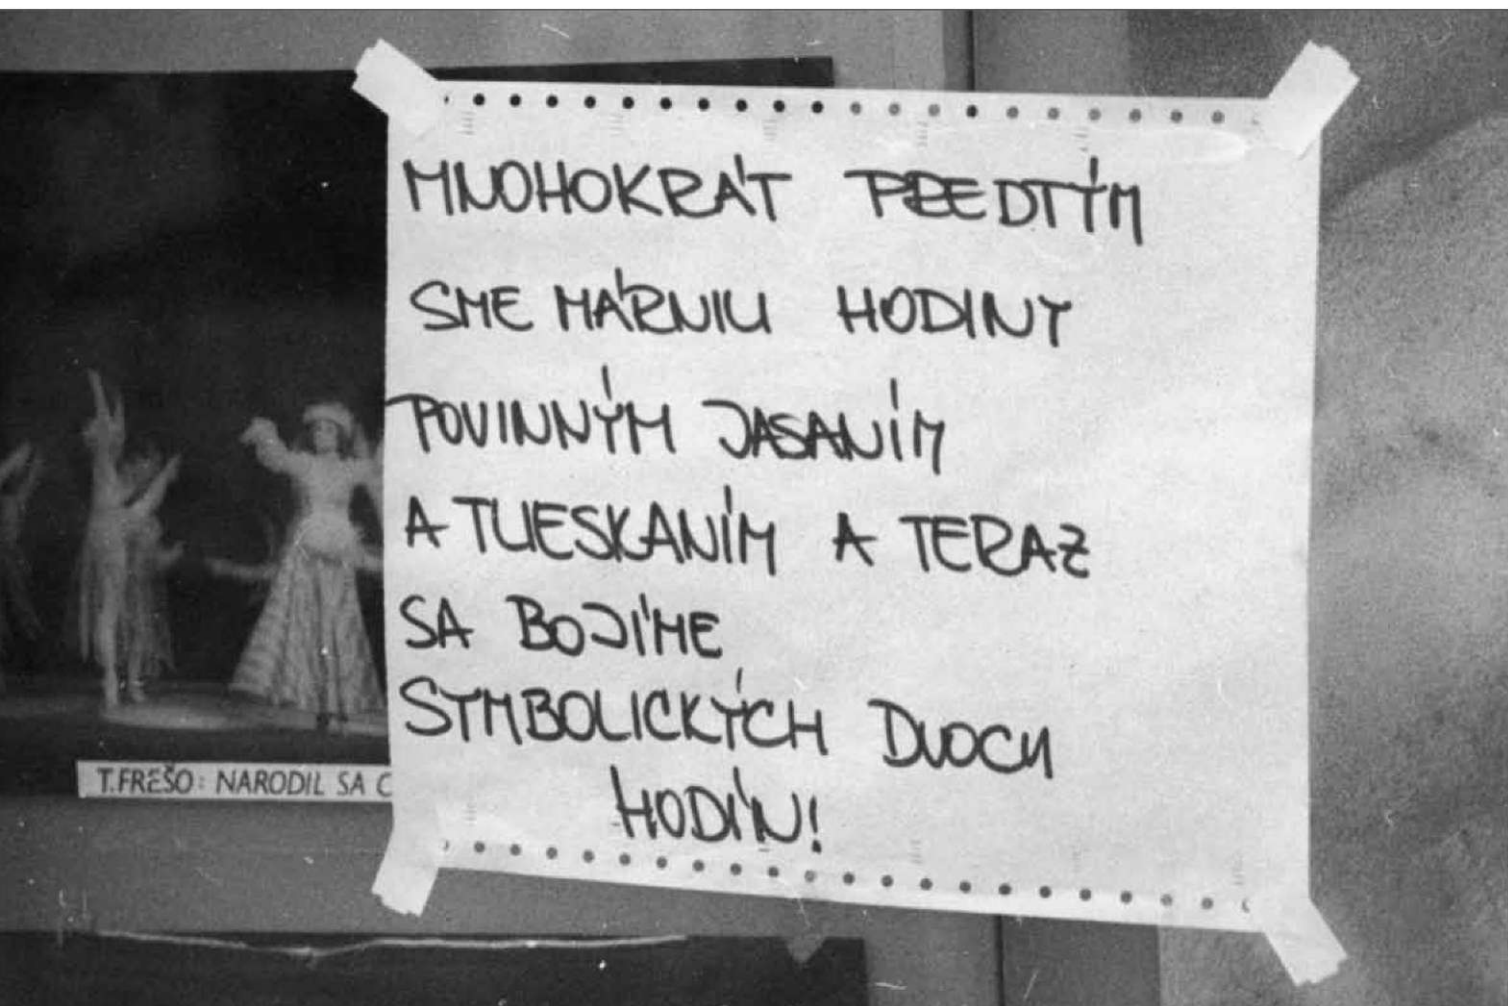 MNOHOKRÁT PREDTÝM
SME MÁRNILI HODINY
POVINNÝM JASANÍM
A TLIESKANÍM A TERAZ
SA BOJÍME
SYMBOLICKÝCH DVOCH
HODÍN!
T. FREŠO: NARODIL SA C